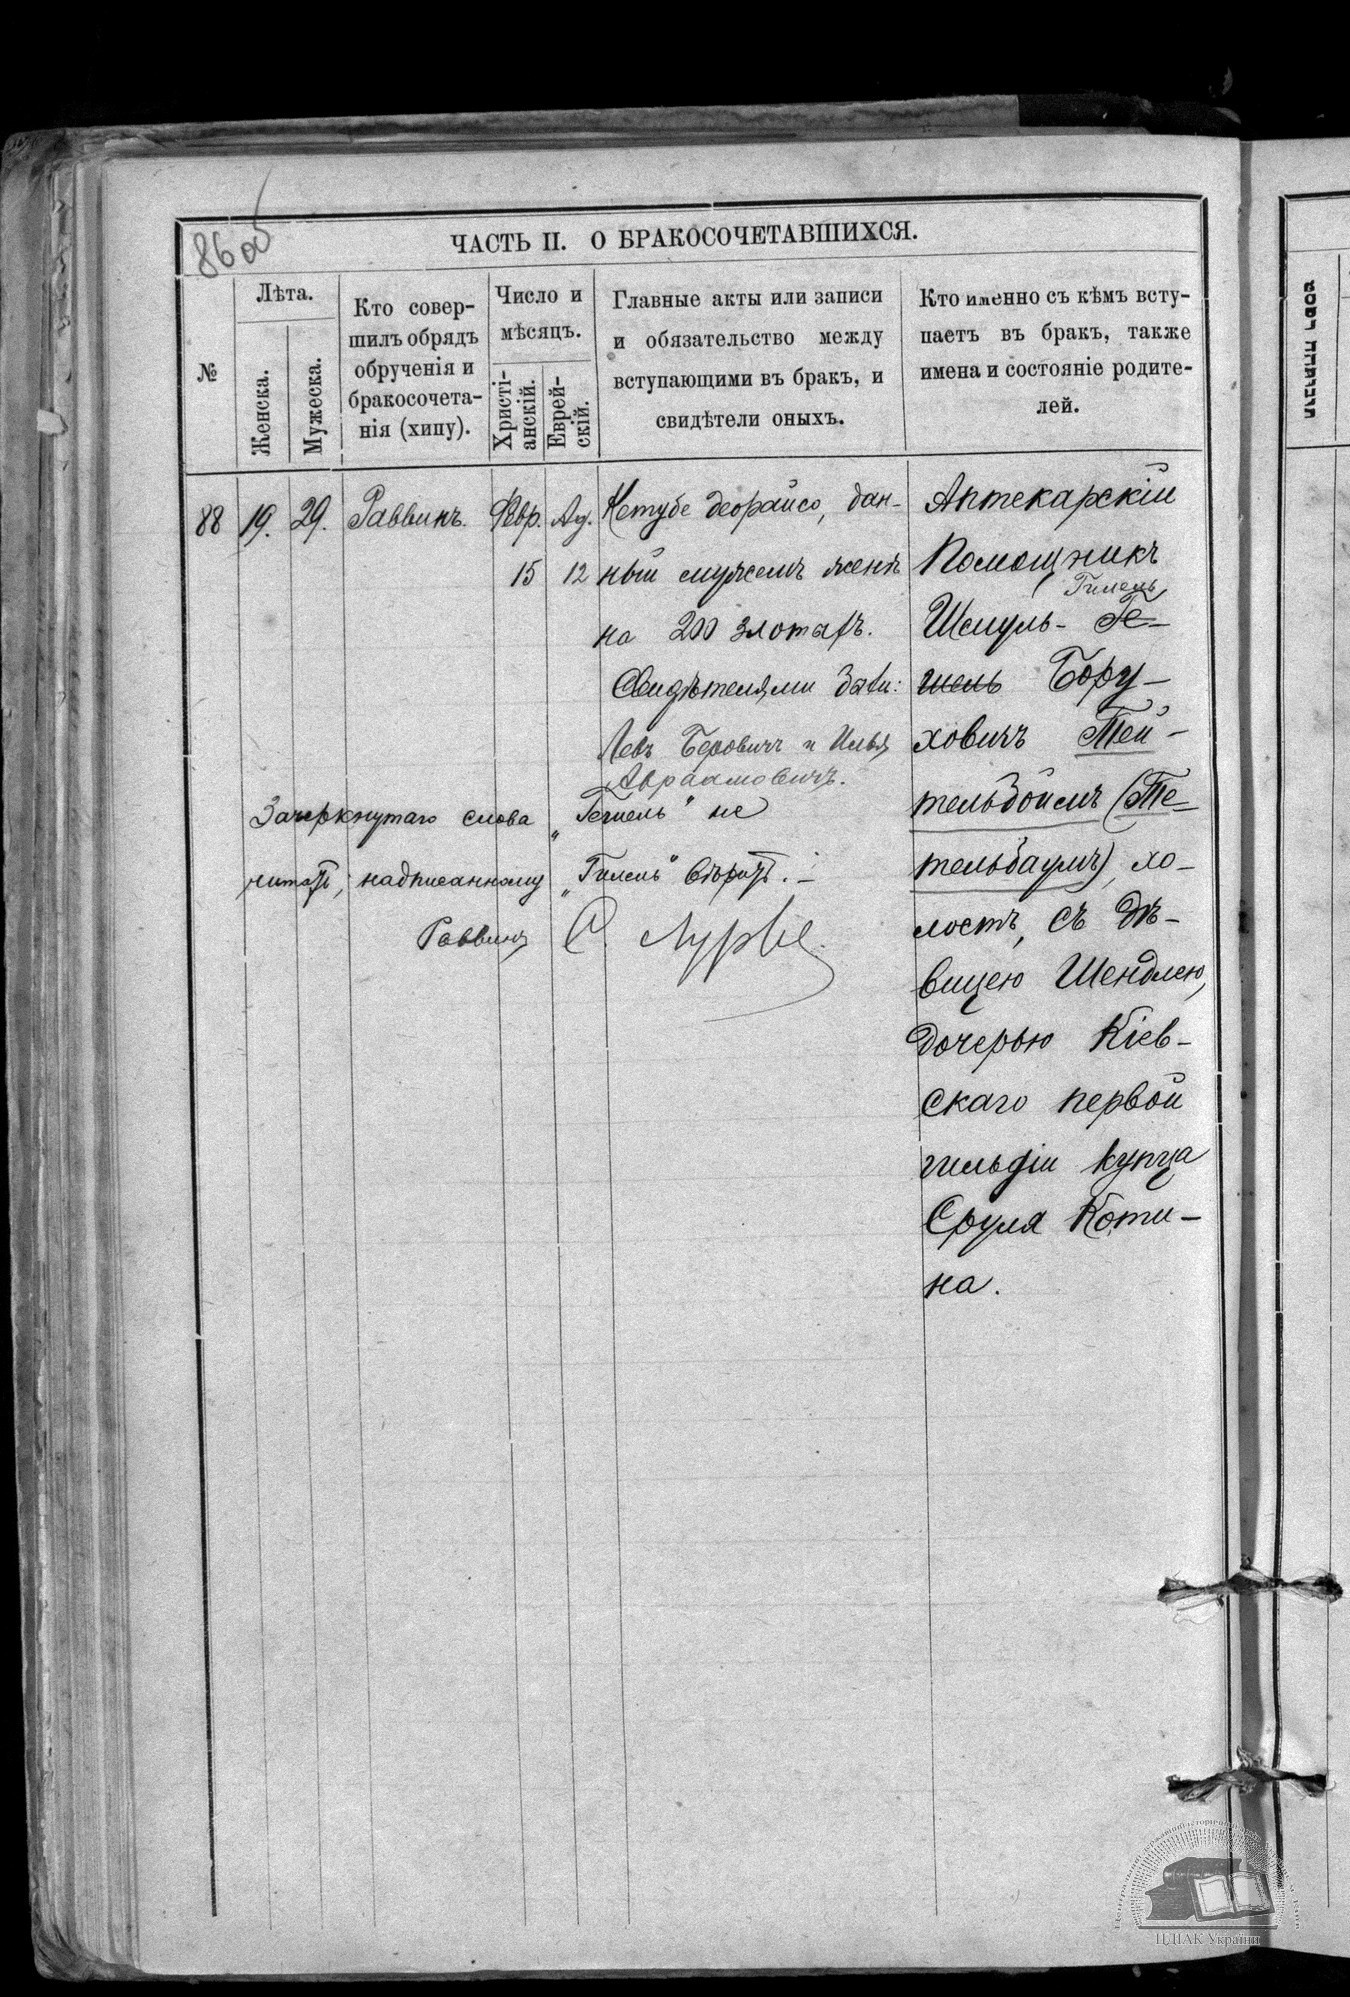 86 об
ЧАСТЬ II. О БРАКОСОЧЕТАВШИХСЯ.
№
Лѣта.
Женска.
Мужеска.
Кто совер-
шилъ обрядъ
обрученія и
бракосочета-
нія (хипу).
Число и
мѣсяцъ.
Христі-
анскій.
Еврей-
скій.
Главные акты или записи
и обязательство между
вступающими въ бракъ, и
свидѣтели оныхъ.
Кто именно съ кѣмъ всту-
паетъ въ бракъ, также
имена и состояніе родите-
лей.
88
19.
29.
Раввинъ.
Февр.
15
Ад.
12
Кетубе деорайсо, дан-
ный мужемъ женѣ
на 200 злотыхъ.
Свидѣтелями были:
Левъ Беровичъ и Илья
Авраамовичъ.
Аптекарскій
Помощникъ
Гилель
Шмуль- Ге-
шель Бору-
ховичъ Тей-
тельбоймъ (Те-
тельбаумъ), хо-
лостъ, съ дѣ-
вицею Шендлею,
дочерью Кіев-
скаго первой
гильдіи купца
Сруля Коти-
на.
Зачеркнутаго слова „Гешель" не
читать, надписанному „Гилель" вѣрить. –
Раввинъ С. Лурье.
ЦДІАК України